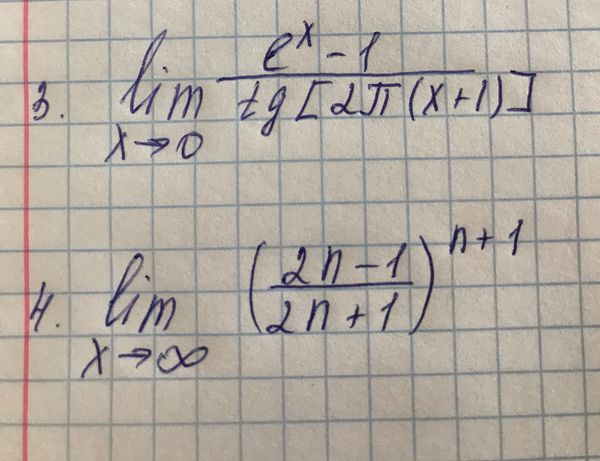 3. lim x→0 (e^x - 1) / (tg [2π(x+1)])
4. lim x→∞ ((2n-1) / (2n+1))^(n+1)